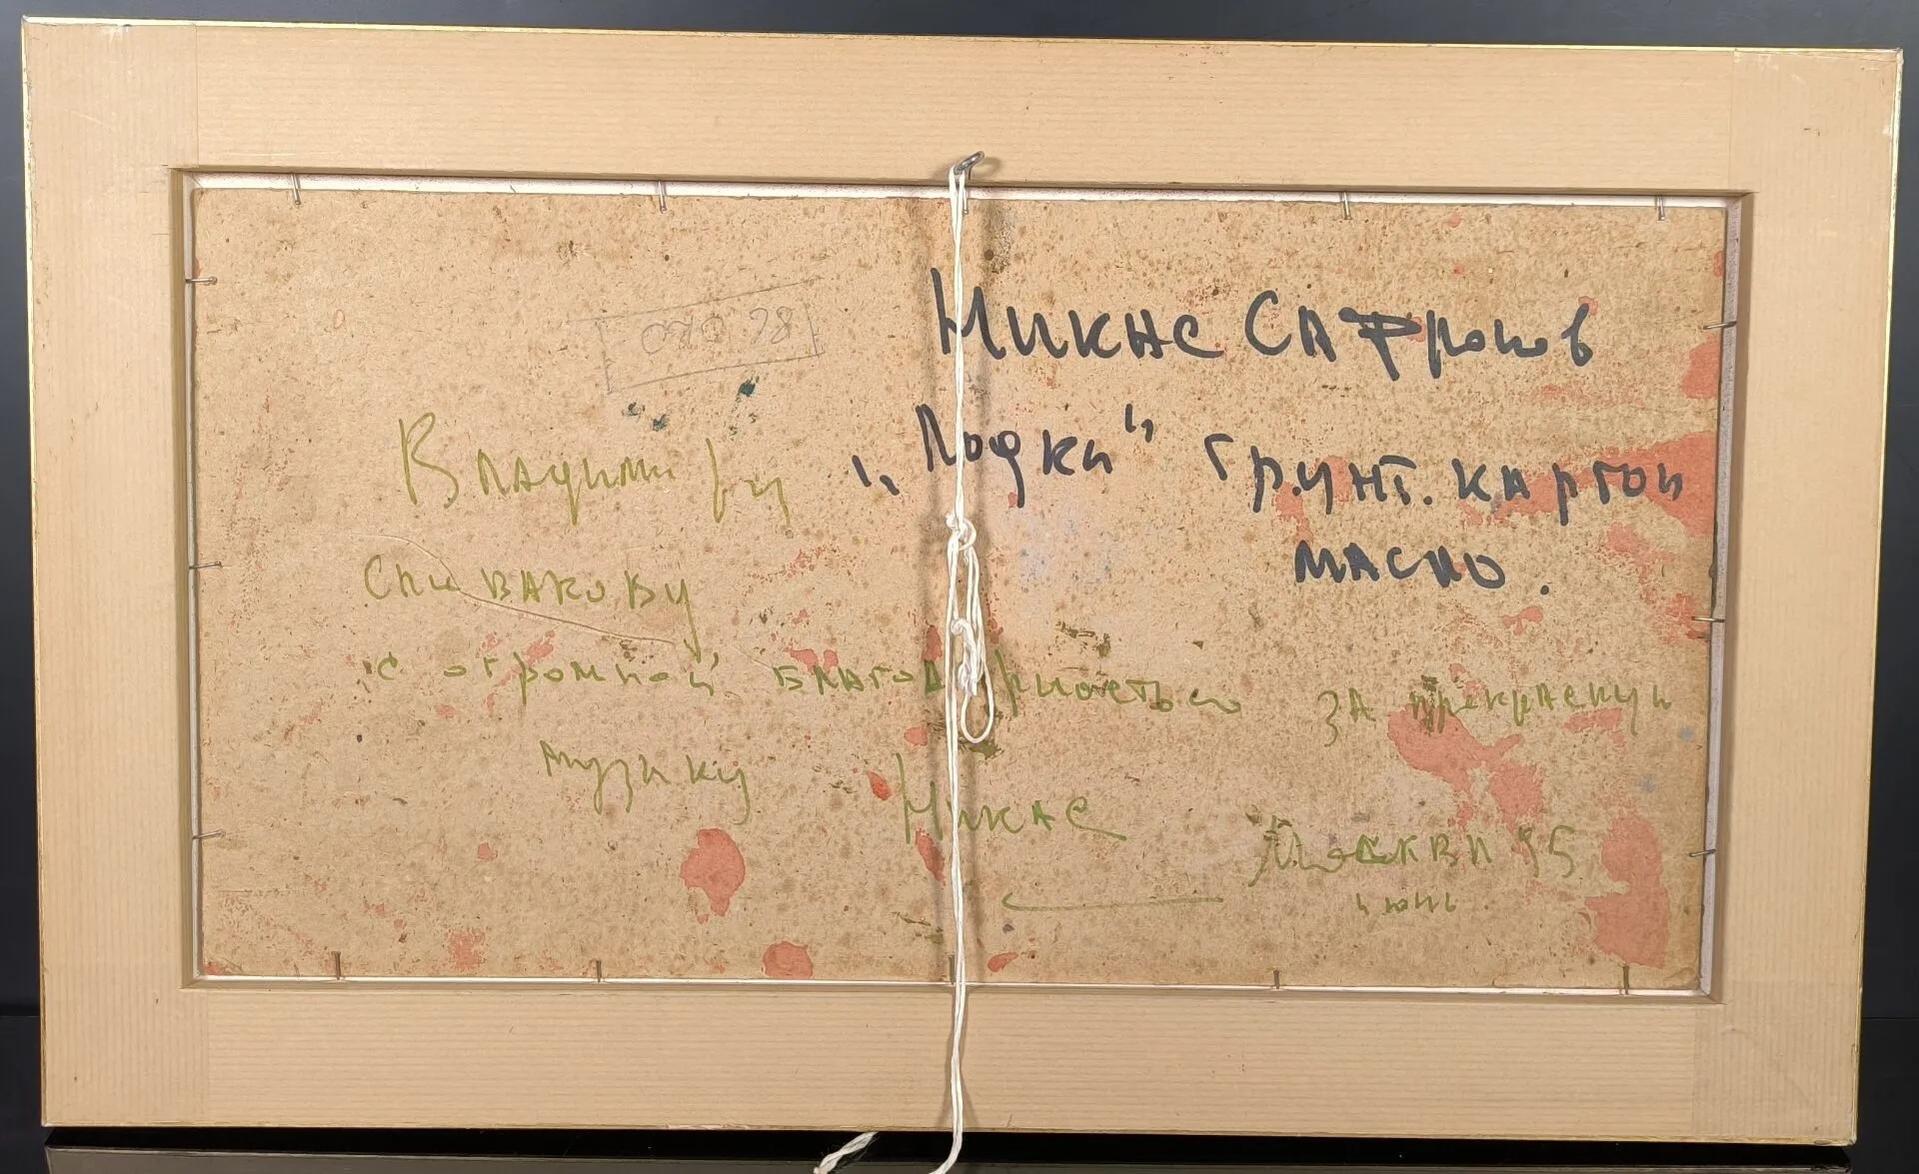 Никас Сафронов
„Лодки" грунт. картон
масло.
Владимиру
Спивакову
с огромной благодарностью за прекрасную
музыку Никас
Москва 95
июнь